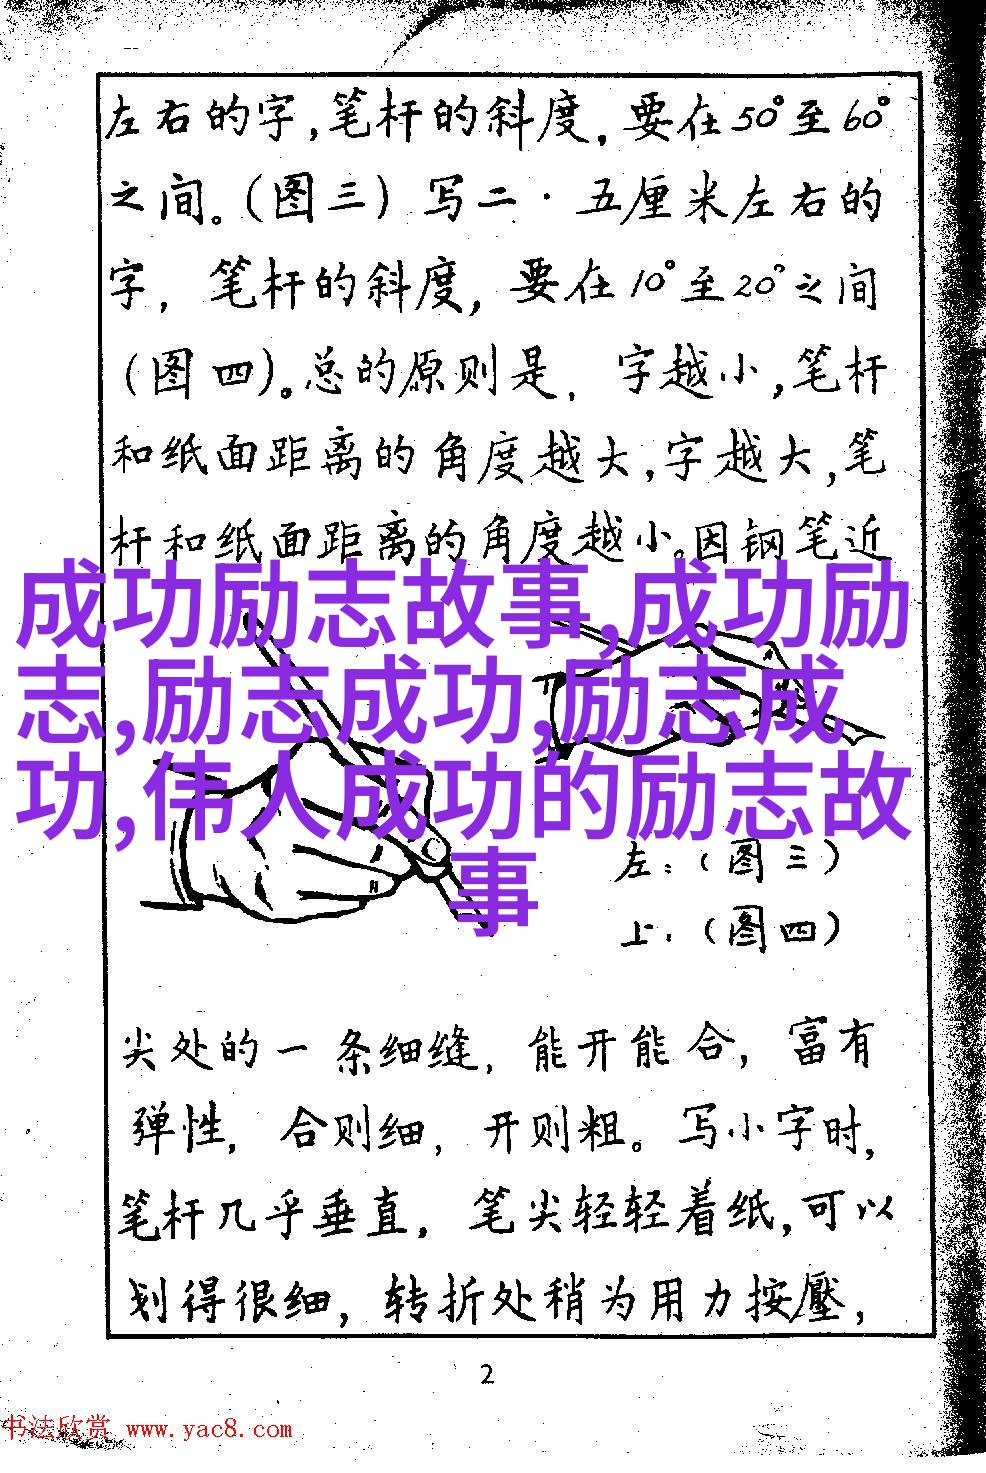 左右的字,笔杆的斜度,要在50°至60°
之间。(图三)写二·五厘米左右的
字,笔杆的斜度,要在10°至20°之间
(图四)。总的原则是,字越小,笔杆
和纸面距离的角度越大,字越大,笔
杆和纸面距离的角度越小。因钢笔近
成功励志故事,成功励
志,励志成功,励志成
功,伟人成功的励志故
事
左:(图三)
上:(图四)
尖处的一条细缝,能开能合,富有
弹性,合则细,开则粗。写小字时,
笔杆几乎垂直,笔尖轻轻着纸,可以
划得很细,转折处稍为用力按壓,
2
书法欣赏 www.yac8.com